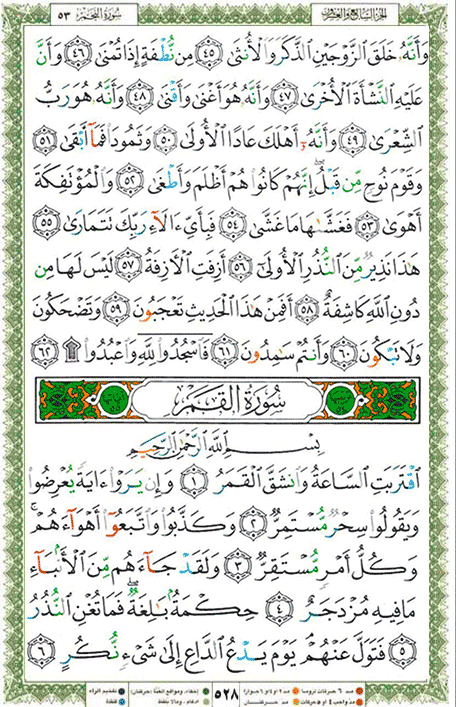 سُورَةُ النَّجْمِ ٥٣
الجزء السابع والعشرون
وَأَنَّهُۥ خَلَقَ ٱلزَّوْجَيْنِ ٱلذَّكَرَ وَٱلْأُنثَىٰ ﴿٤٥﴾ مِن نُّطْفَةٍ إِذَا تُمْنَىٰ ﴿٤٦﴾ وَأَنَّ
عَلَيْهِ ٱلنَّشْأَةَ ٱلْأُخْرَىٰ ﴿٤٧﴾ وَأَنَّهُۥ هُوَ أَغْنَىٰ وَأَقْنَىٰ ﴿٤٨﴾ وَأَنَّهُۥ هُوَ رَبُّ
ٱلشِّعْرَىٰ ﴿٤٩﴾ وَأَنَّهُۥٓ أَهْلَكَ عَادًا ٱلْأُولَىٰ ﴿٥٠﴾ وَثَمُودَا۟ فَمَآ أَبْقَىٰ ﴿٥١﴾
وَقَوْمَ نُوحٍ مِّن قَبْلُ ۖ إِنَّهُمْ كَانُوا۟ هُمْ أَظْلَمَ وَأَطْغَىٰ ﴿٥٢﴾ وَٱلْمُؤْتَفِكَةَ
أَهْوَىٰ ﴿٥٣﴾ فَغَشَّىٰهَا مَا غَشَّىٰ ﴿٥٤﴾ فَبِأَىِّ ءَالَآءِ رَبِّكَ تَتَمَارَىٰ ﴿٥٥﴾
هَٰذَا نَذِيرٌ مِّنَ ٱلنُّذُرِ ٱلْأُولَىٰٓ ﴿٥٦﴾ أَزِفَتِ ٱلْءَازِفَةُ ﴿٥٧﴾ لَيْسَ لَهَا مِن
دُونِ ٱللَّهِ كَاشِفَةٌ ﴿٥٨﴾ أَفَمِنْ هَٰذَا ٱلْحَدِيثِ تَعْجَبُونَ ﴿٥٩﴾ وَتَضْحَكُونَ
وَلَا تَبْكُونَ ﴿٦٠﴾ وَأَنتُمْ سَٰمِدُونَ ﴿٦١﴾ فَٱسْجُدُوا۟ لِلَّهِ وَٱعْبُدُوا۟ ۩ ﴿٦٢﴾
سُورَةُ القَمَرِ
بِسْمِ ٱللَّهِ ٱلرَّحْمَٰنِ ٱلرَّحِيمِ
ٱقْتَرَبَتِ ٱلسَّاعَةُ وَٱنشَقَّ ٱلْقَمَرُ ﴿١﴾ وَإِن يَرَوْا۟ ءَايَةً يُعْرِضُوا۟
وَيَقُولُوا۟ سِحْرٌ مُّسْتَمِرٌّ ﴿٢﴾ وَكَذَّبُوا۟ وَٱتَّبَعُوٓا۟ أَهْوَآءَهُمْ ۚ
وَكُلُّ أَمْرٍ مُّسْتَقِرٌّ ﴿٣﴾ وَلَقَدْ جَآءَهُم مِّنَ ٱلْأَنۢبَآءِ
مَا فِيهِ مُزْدَجَرٌ ﴿٤﴾ حِكْمَةٌۢ بَٰلِغَةٌ ۖ فَمَا تُغْنِ ٱلنُّذُرُ
﴿٥﴾ فَتَوَلَّ عَنْهُمْ ۘ يَوْمَ يَدْعُ ٱلدَّاعِ إِلَىٰ شَىْءٍ نُّكُرٍ ﴿٦﴾
٥٢٨